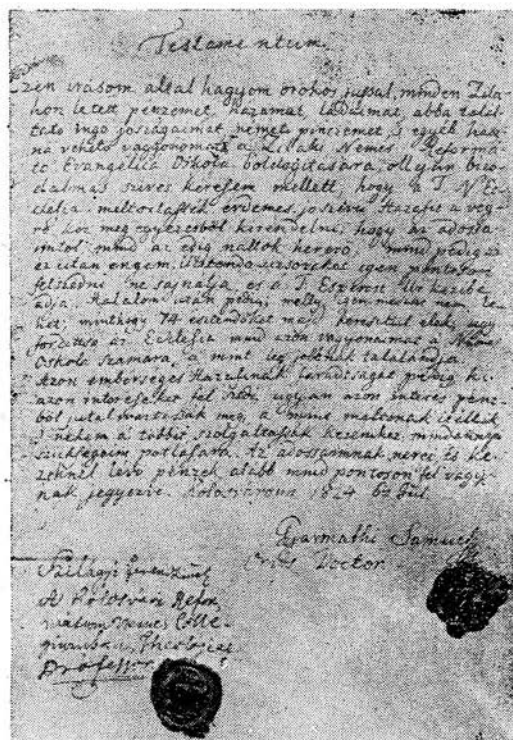 Testamentum.
Ezen irásom által hagyom örökös jussal, minden Zila-
hon letett pénzemet, házamat, ládáimat, abba talál-
tató ingó jószágaimat, nemet pinczémet, 's egyéb hasz-
na vehető vagyonomat a Zilahi Nemes Reformá-
to Evangelica Oskola boldogitására, ollyan bizo-
dalmas szíves kérésem mellett, hogy a T. N. Ec-
clesia méltóztassék érdemes jó szívű Hazafit a vég-
re köz meg egyezésből kirendelni, hogy az adósa-
imtól mind az edig nállok heverő, mind pedig
ez után engem illetendő uzsorákat igen pontoson
felszedni ne sajnálja és a T. Esperest Úr kezibe
adja. Halálom után pedig, melly igen messze nem le-
het, minthogy 74 esztendőket már keresztül éltek, úgy
fordittsa az Ecclesia mind azon vagyonomat a Nemes
Oskola számára, a mint leg jobbnak találándja.
Azon emberséges Hazafinak fáradtságát pedig ki
azon intereseket fel szedi, ugyan azon interes pénz-
ből jutalmaztassák meg, a mint méltónak itéllik
's nékem a többit szolgáltassák kezemhez mindennapi
szükségeim pótlására. Az adossaimnak nevei és ke-
zeknél lévő pénzek alább mind pontoson fel vagy-
nak jegyezve. Kolosváron 1824 Jul.
Gyarmathi Samuel
Orvos Doctor
Szilágyi Ferentz
A Kolosvári Refor-
mátum Nemes Colle-
giumba Theologiae
Professor